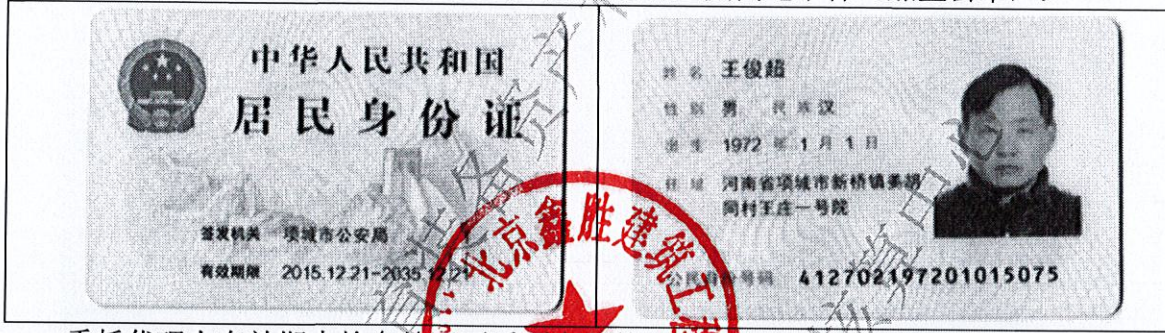 中华人民共和国
居民身份证
签发机关 项城市公安局
有效期限 2015.12.21-2035.12.21
姓名 王俊超
性别 男 民族 汉
出生 1972 年 1 月 1 日
住址 河南省项城市新桥镇姜胡
同村王庄一号院
公民身份号码 412702197201015075
北京鑫胜建筑工